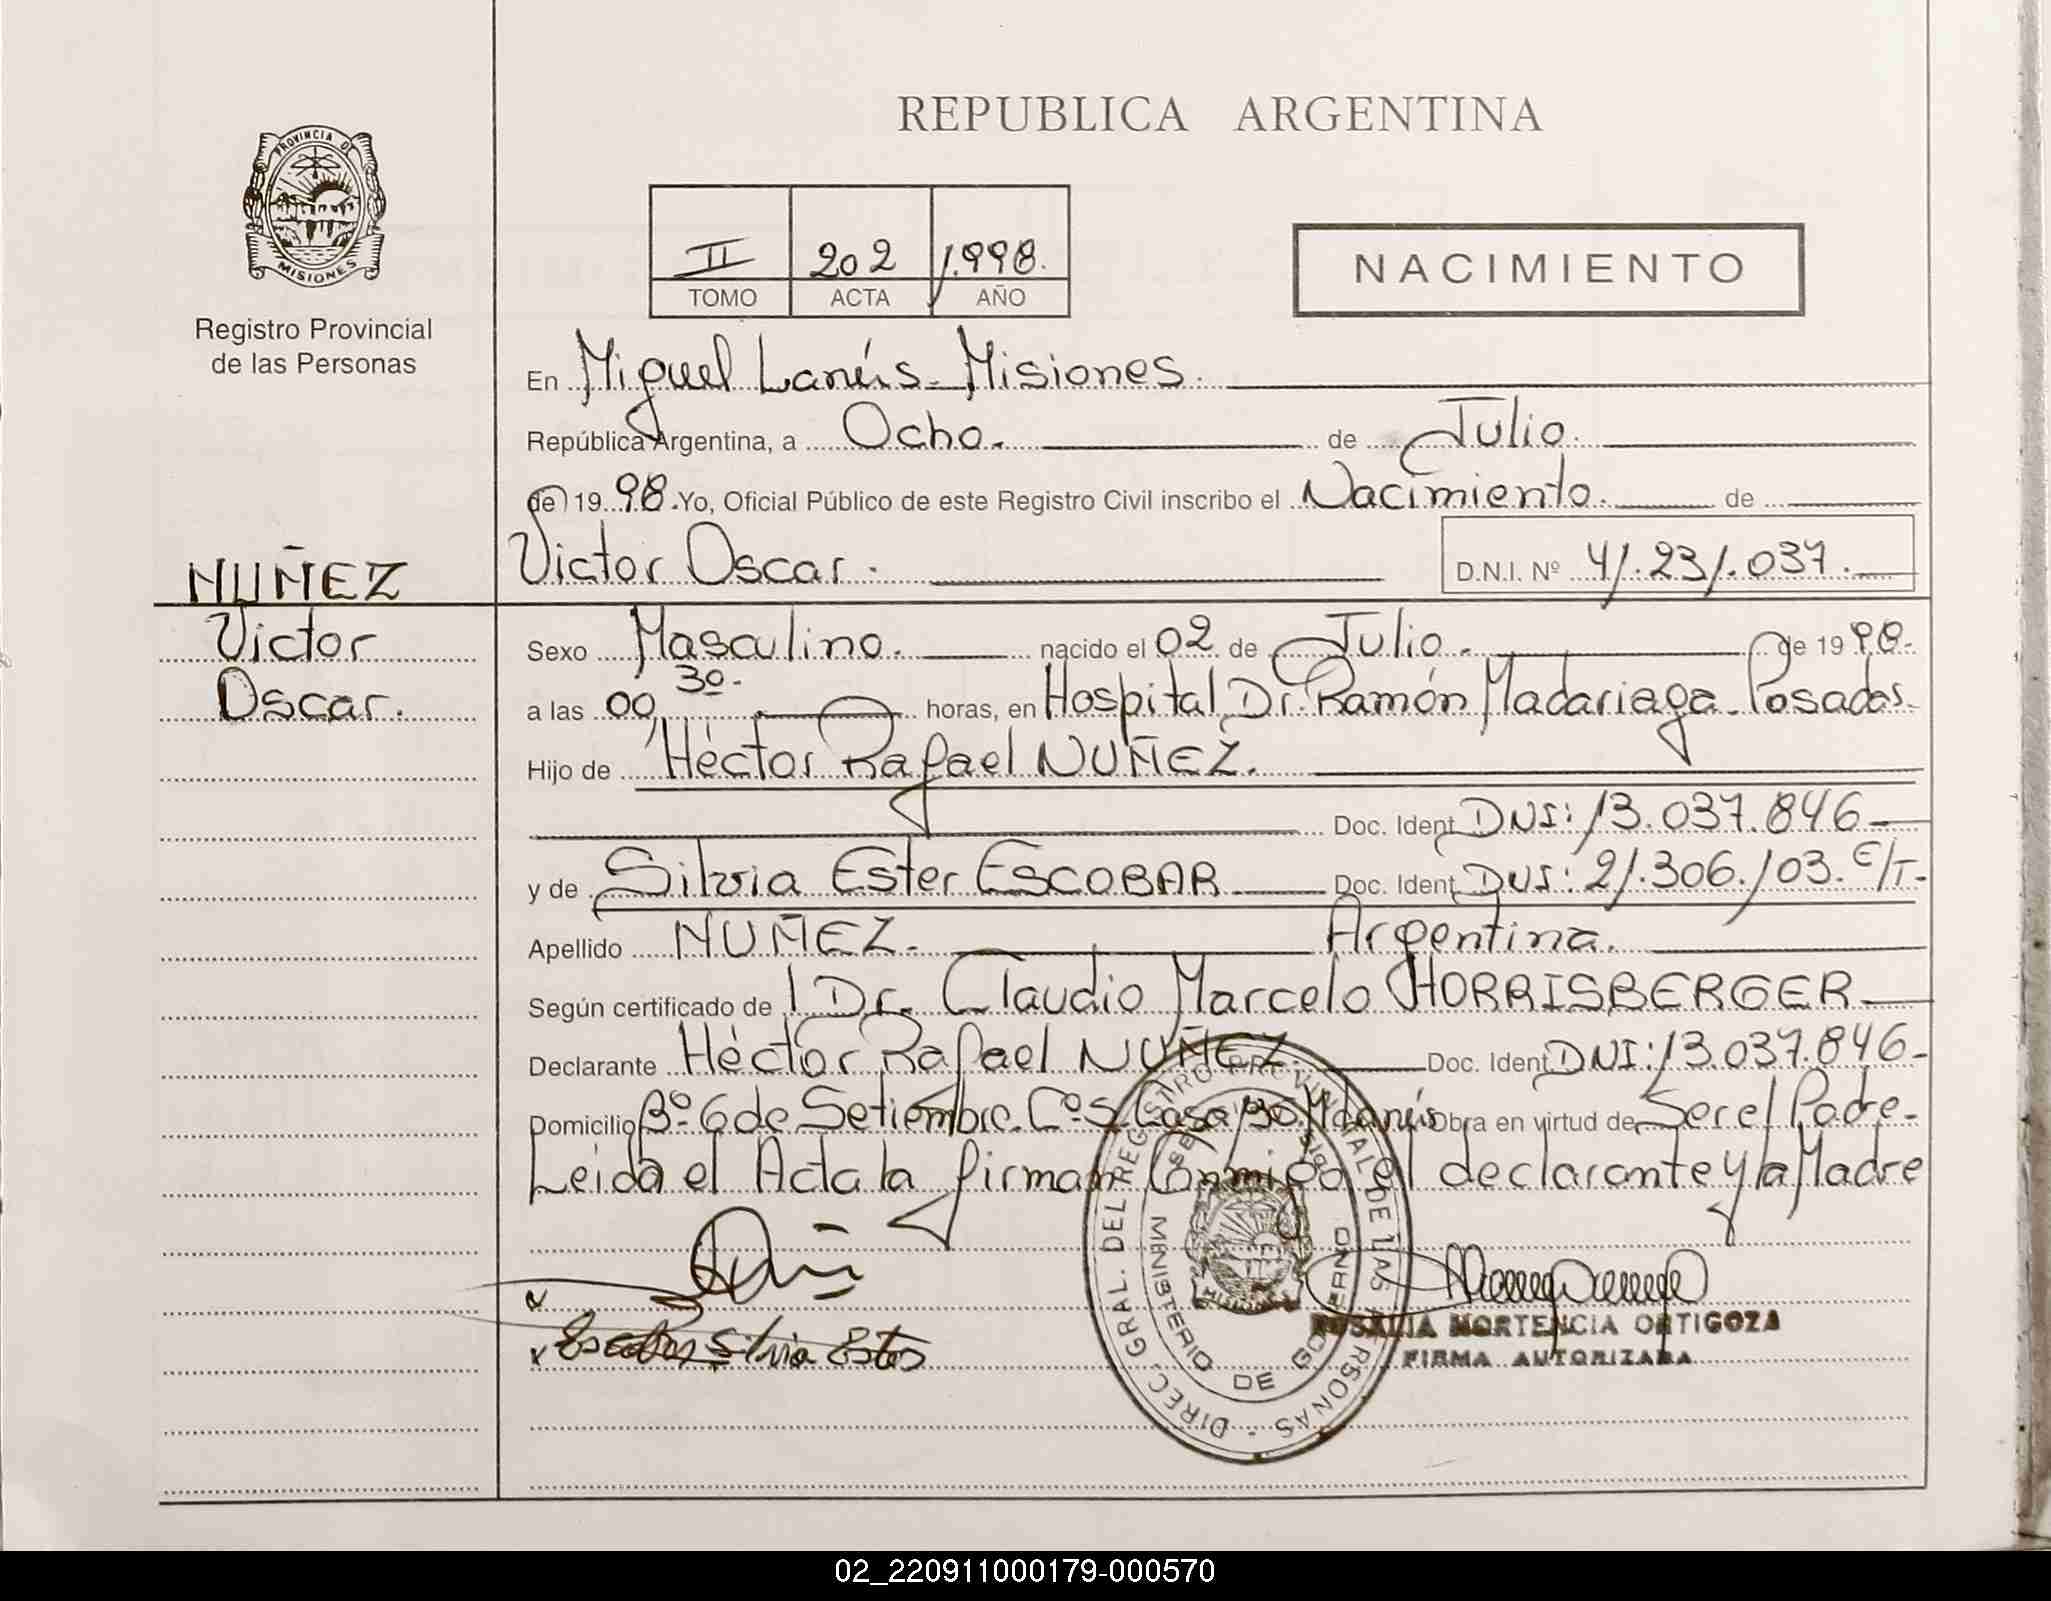 REPUBLICA ARGENTINA
PROVINCIA DE
MISIONES
Registro Provincial
de las Personas
II 202 1.998.
TOMO ACTA AÑO
NACIMIENTO
En Miguel Lanús - Misiones.
República Argentina, a Ocho. de Julio.
de 19 98. Yo, Oficial Público de este Registro Civil inscribo el Nacimiento. de
Victor Oscar. D.N.I. Nº 41.231.037.
NUÑEZ
Victor
Oscar.
Sexo Masculino. nacido el 02 de Julio. de 19 98.
a las 00,30. horas, en Hospital Dr. Ramón Madariaga - Posadas.
Hijo de Héctor Rafael NUÑEZ.
Doc. Ident. DNI: 13.037.846
y de Silvia Ester ESCOBAR Doc. Ident. DNI: 21.306.103. E/T.
Apellido NUÑEZ. Argentina.
Según certificado de Dr. Claudio Marcelo HORRISBERGER
Declarante Héctor Rafael NUÑEZ. Doc. Ident. DNI: 13.037.846
Domicilio Bº 6 de Setiembre. Cº S. Casa 130. M. Lanús Obra en virtud de Ser el Padre.
Leida el Acta la firman Conmigo el declarante y la Madre
x
x Escobar Silvia Ester
DIREC. GRAL. DEL REGISTRO PROVINCIAL DE LAS PERSONAS
MINISTERIO DE GOBIERNO
MISIONES
ROSALIA HORTENCIA ORTIGOZA
FIRMA AUTORIZADA
02_220911000179-000570